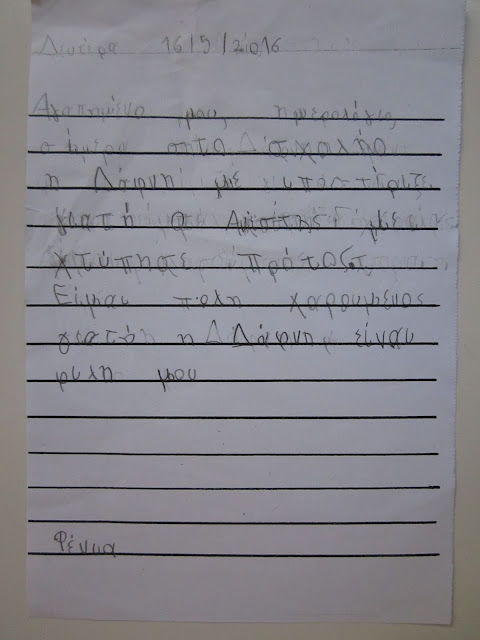 Δευτέρα 16/5/2016
Αγαπημένο μου ημερολόγιο
σήμερα στο
η Δάφνη με υποστίριξε
γιατή ο με
χτύπησε πρότος.
Είμαι πολη χαρουμενος
γιατή η Δάφνη είναι
φιλη μου